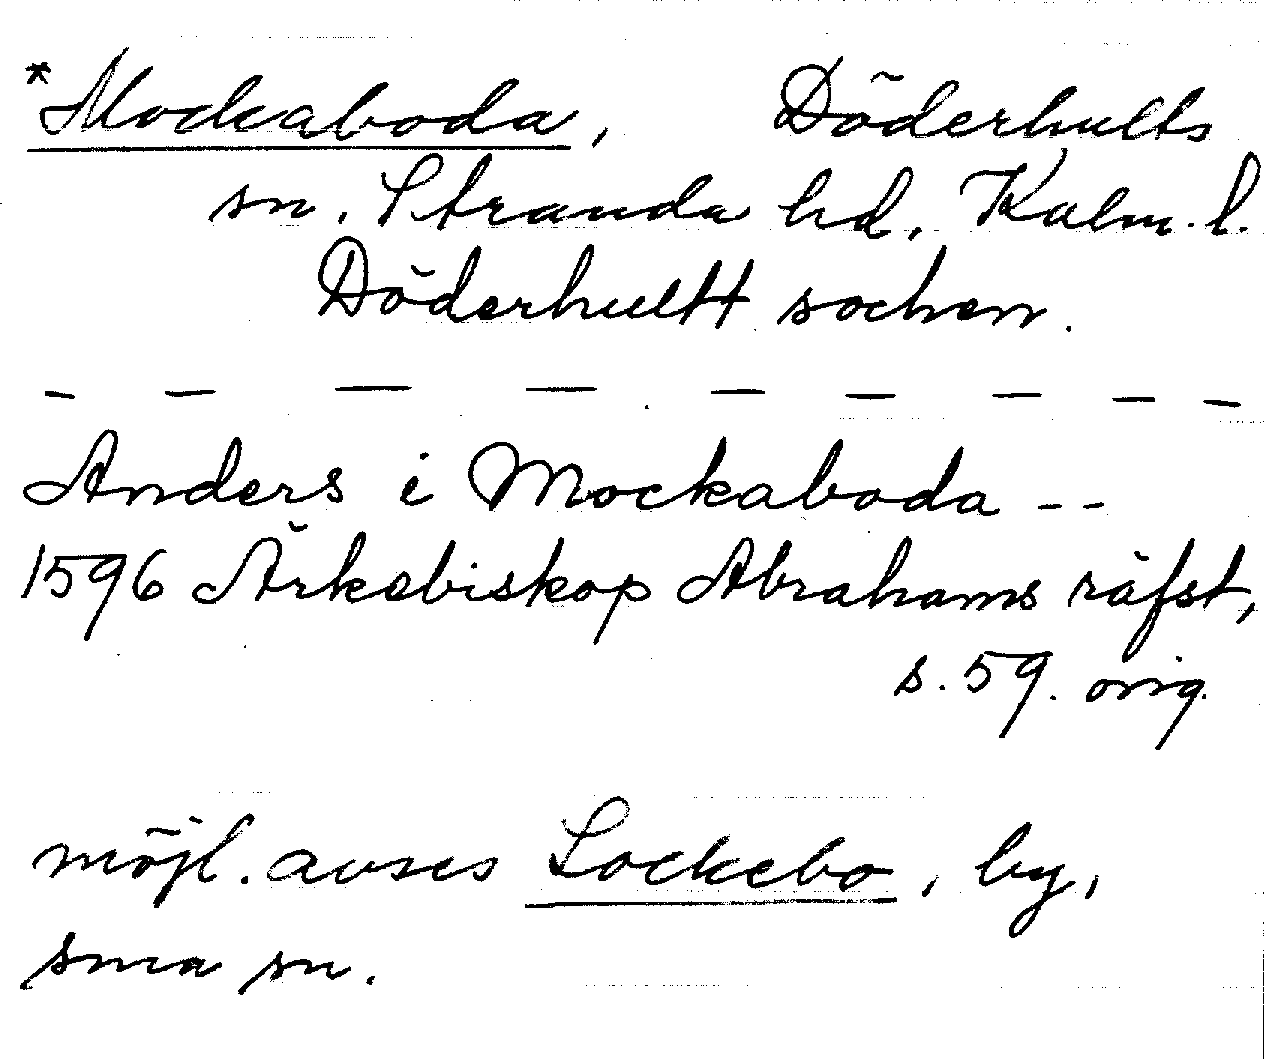 *Mockaboda, Döderhults
sn. Stranda hd, Kalm. l.
Döderhultt sochen.
— — — — — — — — —
Anders i Mockaboda --
1596 Ärkebiskop Abrahams räfst,
s. 59. orig.
möjl. avses Lockebo, by,
sma sn.